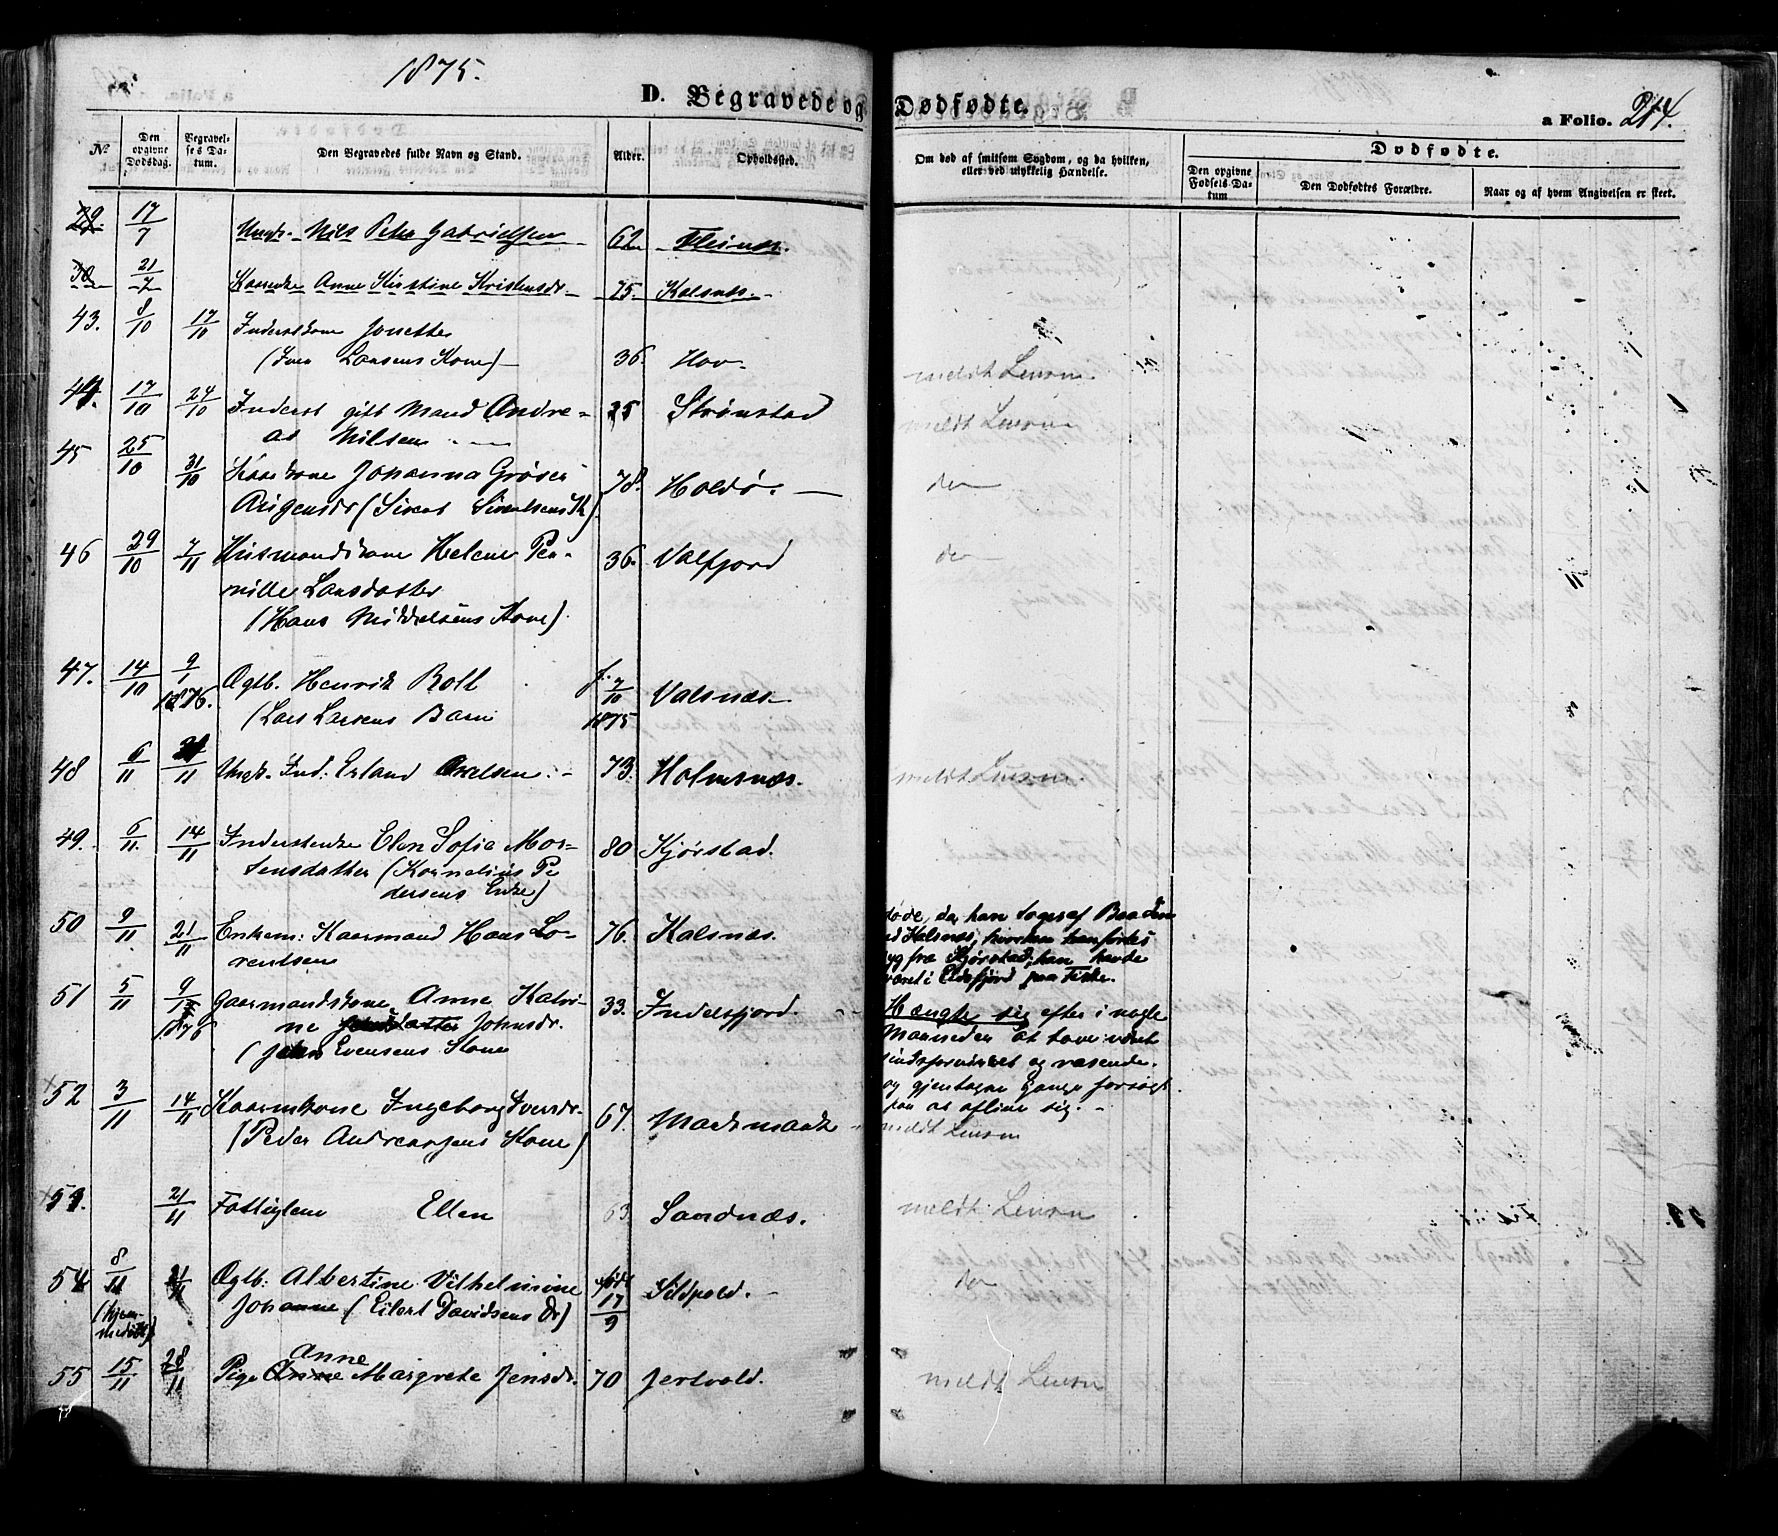 1875.
D. Begravede og Dødfødte.
a Folio. 214.
No.
Den opgivne Dødsdag.
Begravelses Datum.
Den Begravedes fulde Navn og Stand.
Alder.
Opholdssted.
Om død af smitsom Sygdom, og da hvilken, eller ved ulykkelig Hændelse.
Dødfødte.
Den opgivne Fødsels-Datum
Den Dødfødtes Forældre.
Naar og af hvem Angivelsen er skeet.
29. 17/7 Ungk. Nils Peter Gabrielsen 62 Fleines.
30 21/7 Kaarenke Anne Kirstine Kristensdr 75. Kalsnes.
43. 8/10 17/10 Inderstkone Jonette
(Iver Larsens Kone) 36. Hov. meldt Lensm.
44. 17/10 24/10 Inderst gift Mand Andre-
as Nilsen 25 Strønstad meldt Lensm
45 25/10 31/10 Kaarkone Johanna Grøger
(Sivert Sivertsens K) 78. Holdø. do
46 29/10 7/11 Husmandskone Helene Per-
nille Larsdatter
(Hans Mikkelsens Kone) 36. Valfjord do
47. 14/10 9/1 1876. Ægtb. Henrik Roll
(Lars Larsens Barn f. 7/10 1875 Valsnæs
48 6/11 21/11 Ungk. Ind: Erland Axelsen. 73. Holmsnæs. meldt Lensm.
49. 6/11. 14/11 Inderstenke Elen Sofie Mor-
tensdatter (Kornelius Pe
dersens Enke) 80 Kjørstad.
50 9/11 21/11 Enkem: Kaarmand Hans Lo-
rentsen 76. Kalsnæs.
døde, da han toges af Baaden
ved Kalsnæs, hvorhen han førtes
syg fra Kjørstad; han havde
været i Eidsfjord paa Fiske.
51 5/11 9/1 1876 Gaarmandskone Anne Katri-
ne Johnsdr.
(John Evensens Kone 33. Indelsfjord.
Hængte sig efter i nogle
Maaneder at have været
sindsforvirret og rasende.
og gjentagne Gange forsøgt
paa at aflive sig.
52 3/11 14/11 Kaarmkone Ingeborg Iversdr
(Peder Andreassens Kone) 67. Markmark meldt Lensm
53. 21/11 Fattiglem Ellen 63. Sandnæs. meldt Lensm
54 8/11 (hjem-
medøbt) 21/11 Ægtb. Albertine Vilhelmine
Johanne (Eilert Davidsens Dr) født 17/9 Sildpold. do
55 15/11 28/11 Pige Anne Margrete Jensdr. 70 Jertvold. meldt Lensm